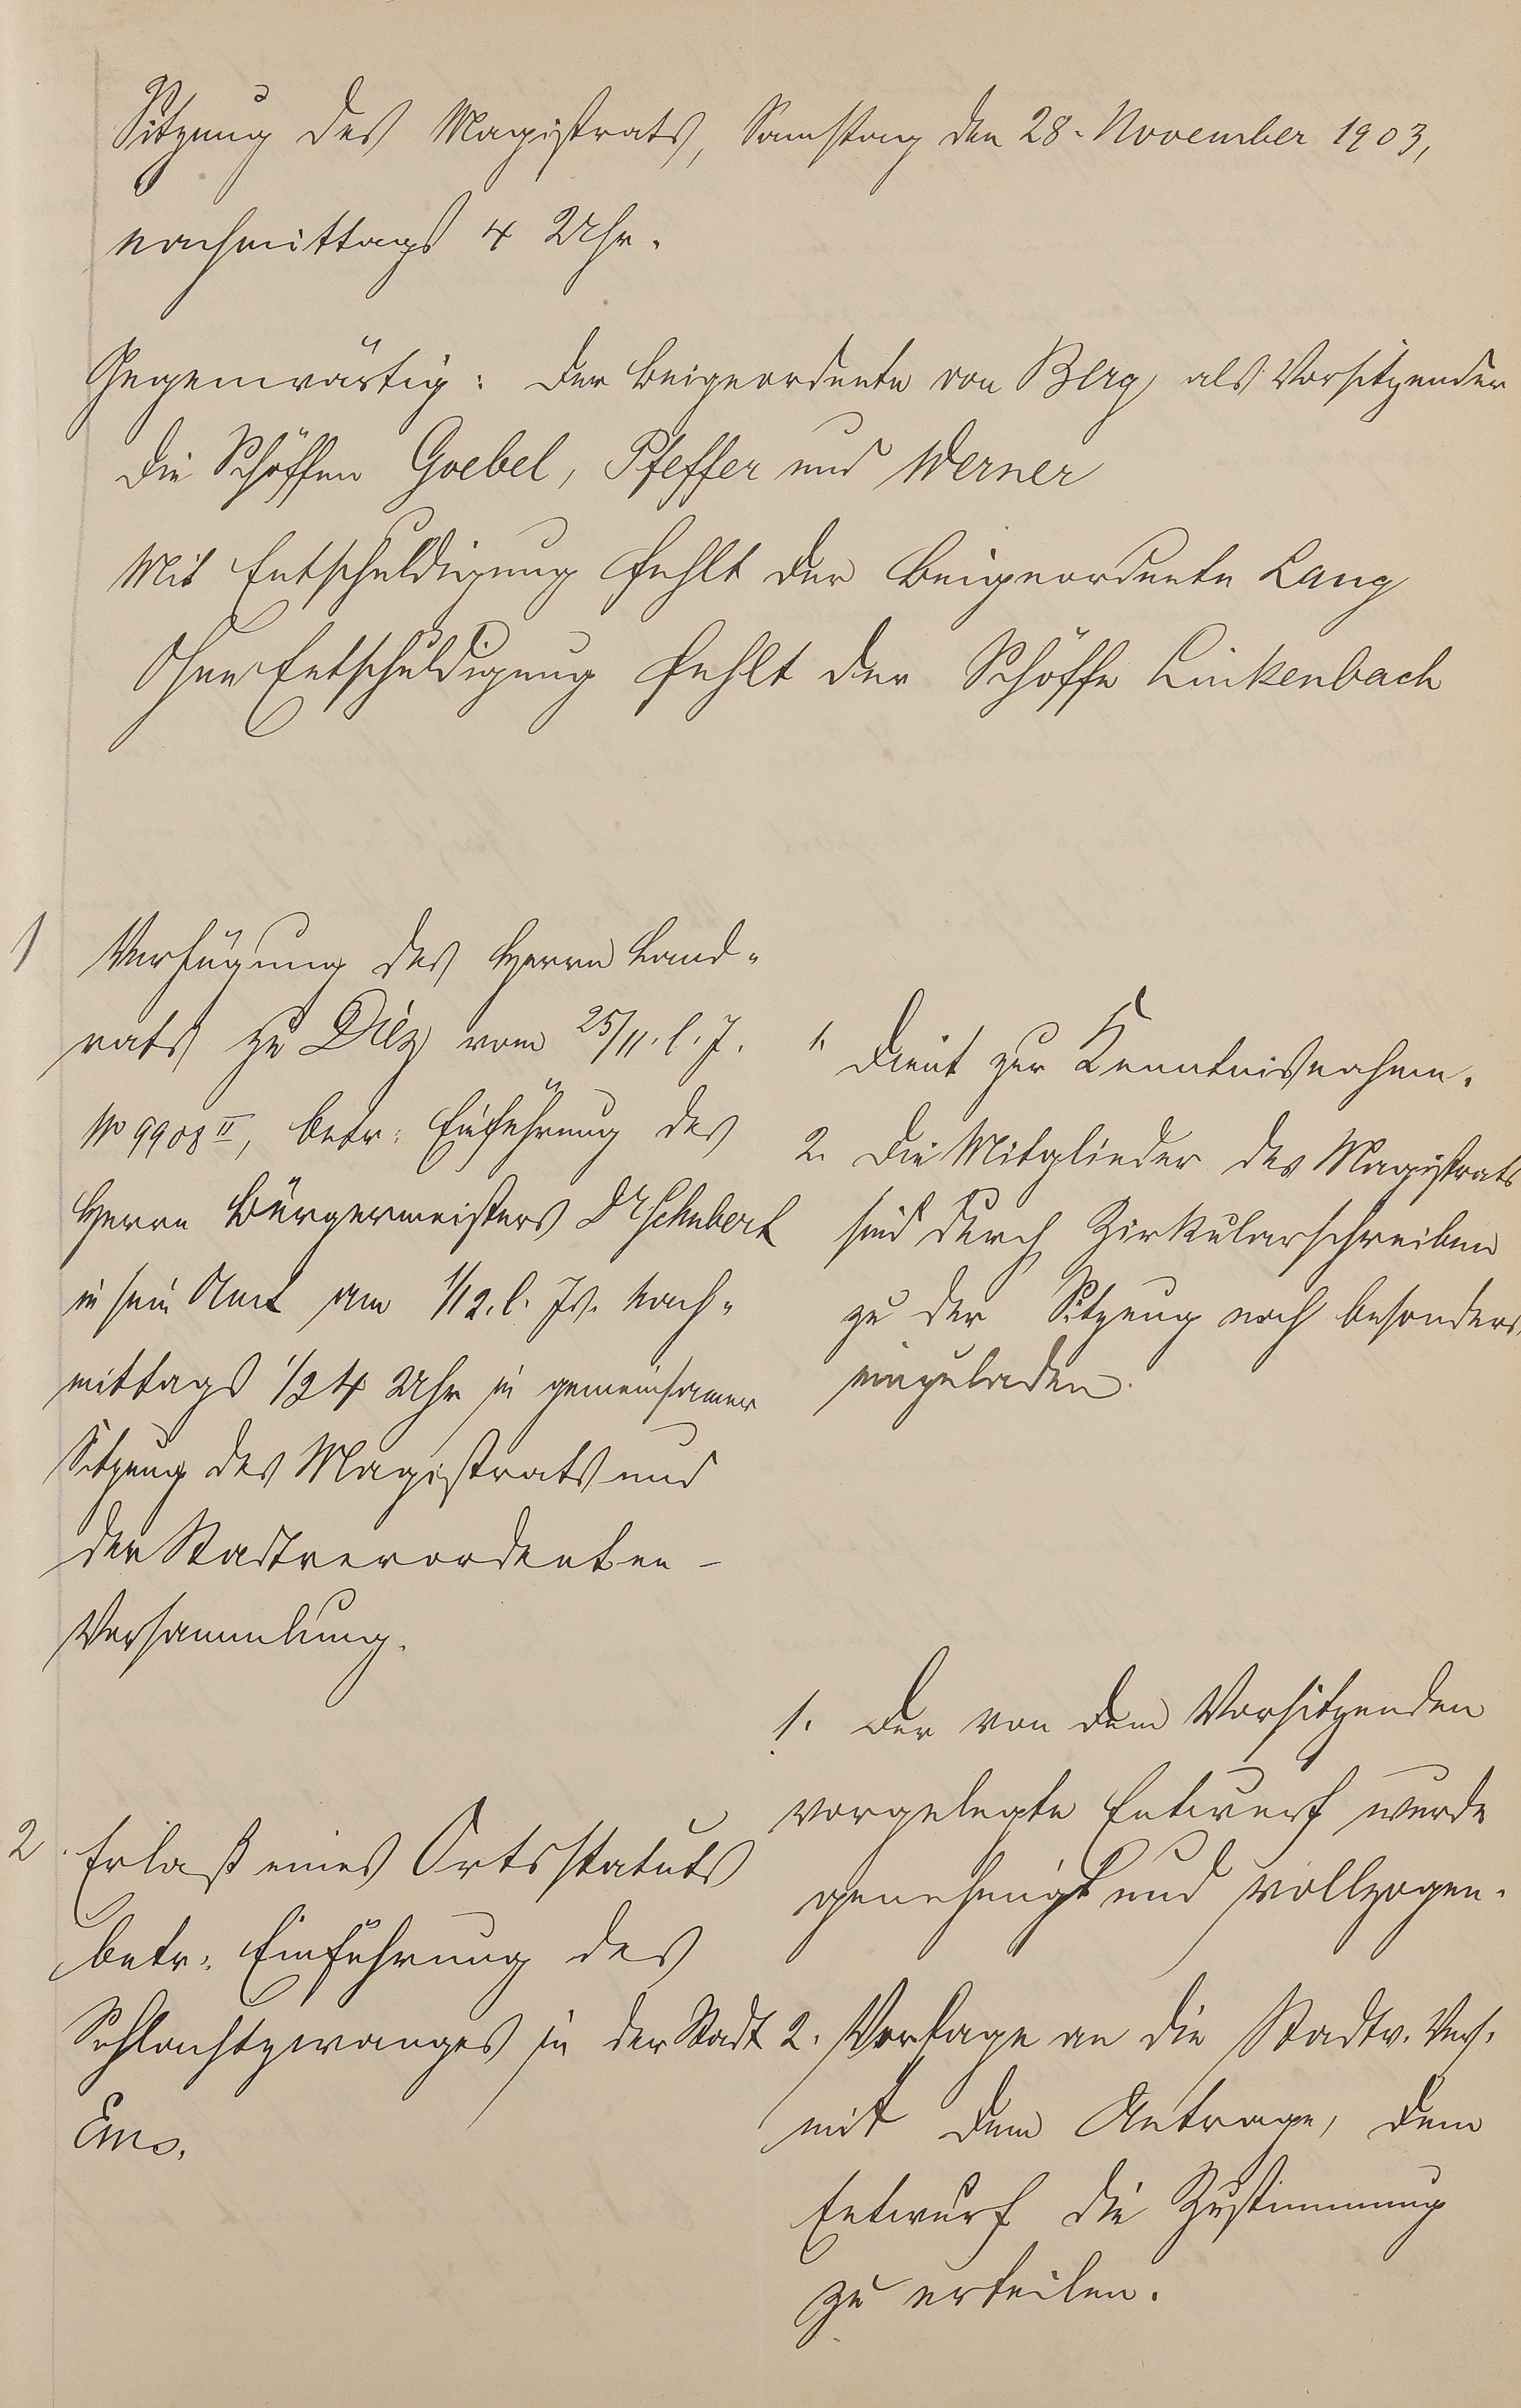 Sitzung des Magistrats, Samstag den 28. November 1903,
nachmittags 4 Uhr.
Gegenwärtig: Der Beigeordnete von Berg als Vorsitzender
die Schöffen Goebel, Pfeffer und Werner
Mit Entschuldigung fehlt der Beigeordnete Lang
Ohne Entschuldigung fehlt der Schöffe Linkenbach
1 Verfügung des Herrn Land-
rats zu Diez vom 25/11. l. J.
No 9908 II, betr. Einführung des
Herrn Bürgermeisters Dr Schubert
in sein Amt am 1/12. l. Js. nach-
mittags 1/2 4 Uhr in gemeinsamer
Sitzung des Magistrats und
der Stadtverordneten-
Versammlung.
1. Dient zur Kenntnisnahme.
2. Die Mitglieder des Magistrats
sind durch Zirkularschreiben
zu der Sitzung noch besonders
einzuladen.
2. Erlaß eines Ortsstatuts
betr. Einführung des
Schlachtzwanges in der Stadt
Ems.
1. Der von dem Vorsitzenden
vorgelegte Entwurf wurde
genehmigt und vollzogen.
2. Vorlage an die Stadtv. Vers.
mit dem Antrage, dem
Entwurf die Zustimmung
zu erteilen.